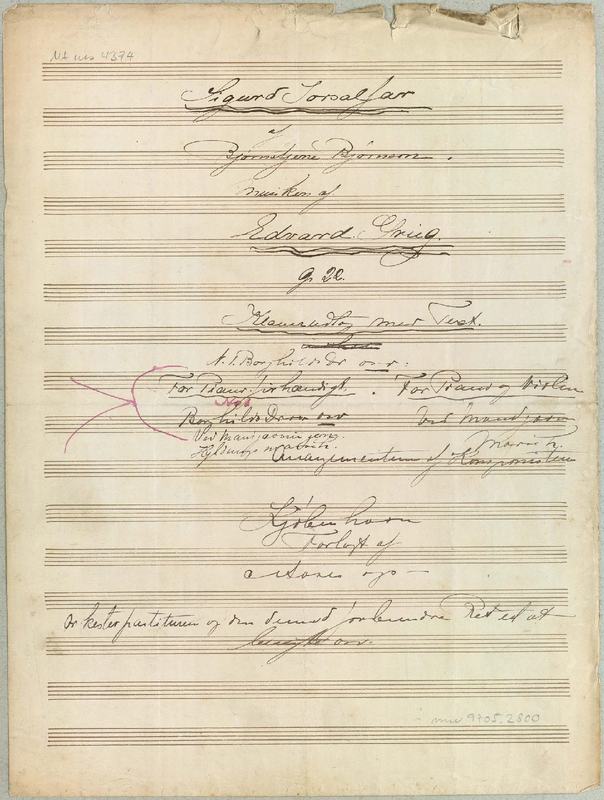 Nt mus 4374
Sigurd Jorsalfar
af
Bjørnstjerne Bjørnson.
musiken af
Edvard Grieg.
op 22.
Klaverudtog med Text.
N. 1. Borghilds Dr
For Piano firhændigt. For Piano og Violin
No 1
Borghilds Drøm
Ved Mands
Hyldnings march.
March.
Arrangementum af Komponisten
Kjöbenhavn
Forlagt af
Orkesterpartituren og den dermed forbundne Ret til at
mus 9705.2800